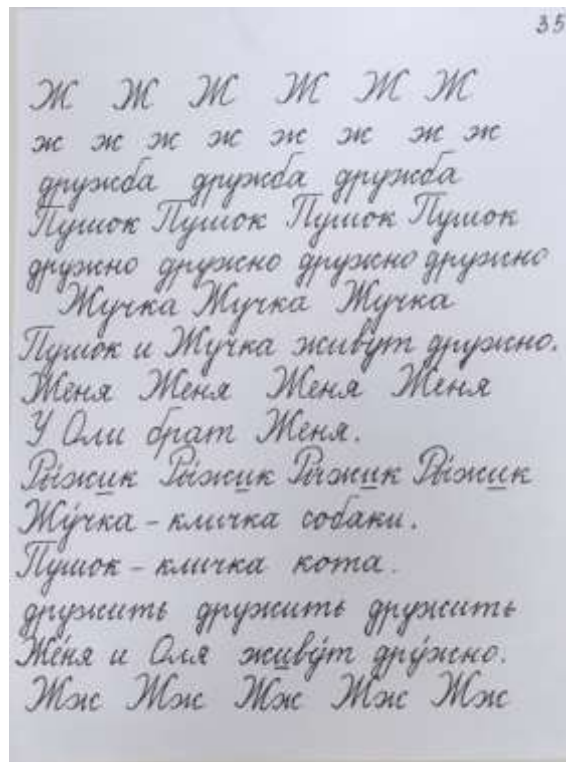 35
Ж Ж Ж Ж Ж Ж
ж ж ж ж ж ж ж ж
дружба дружба дружба
Пушок Пушок Пушок Пушок
дружно дружно дружно дружно
Жучка Жучка Жучка
Пушок и Жучка живут дружно.
Женя Женя Женя Женя
У Оли брат Женя.
Ры́жик Ры́жик Рыжик Ры́жик
Жу́чка - кличка собаки.
Пушок - кличка кота.
дружить дружить дружить
Же́ня и Оля живу́т дру́жно.
Жж Жж Жж Жж Жж